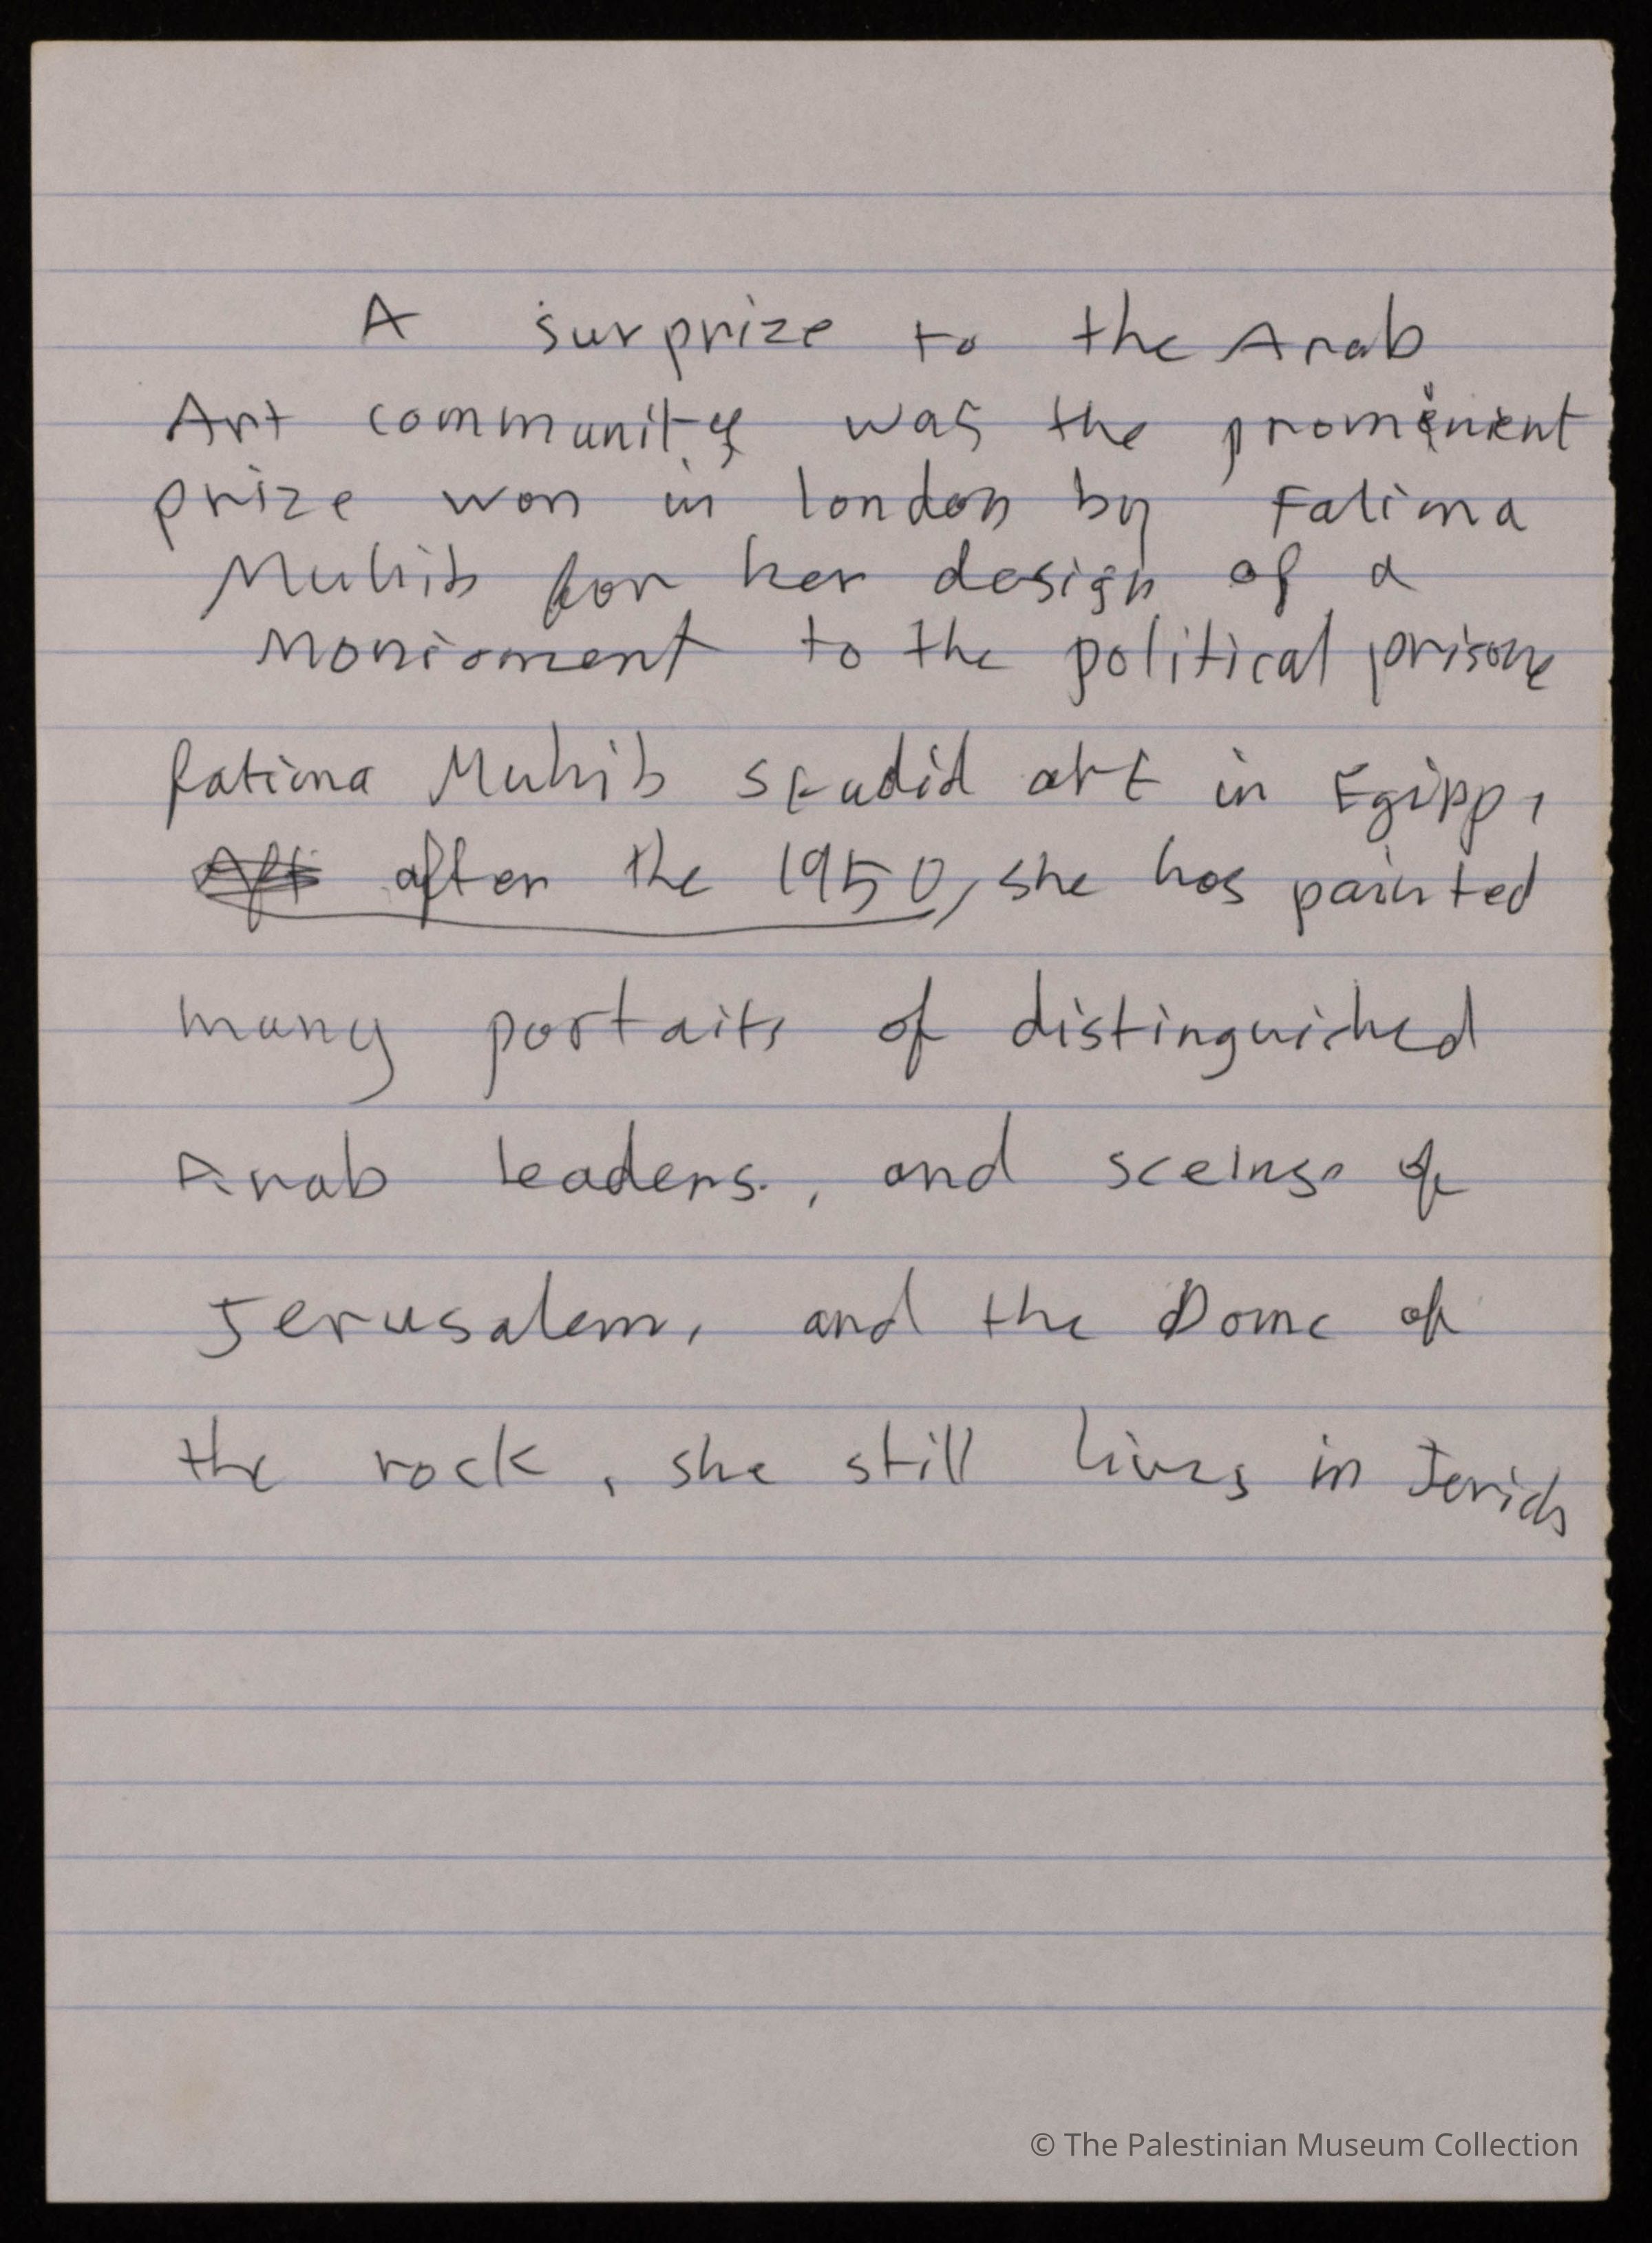 A surprize to the Arab
Art community was the prominent
prize won in london by Fatima
Muhib for her design of a
Monioment to the political prisone
fatima Muhib studid art in Egipp,
after the 1950, she has painted
many portaits of distinguished
Arab leaders, and sceings of
Jerusalem, and the Dome of
the rock, she still lives in Jerich
© The Palestinian Museum Collection